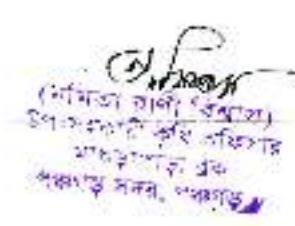 (নমিতা রাণী বিশ্বাস)
উপ-সহকারী কৃষি অফিসার
ব্লক
পঞ্চগড় সদর, পঞ্চগড়